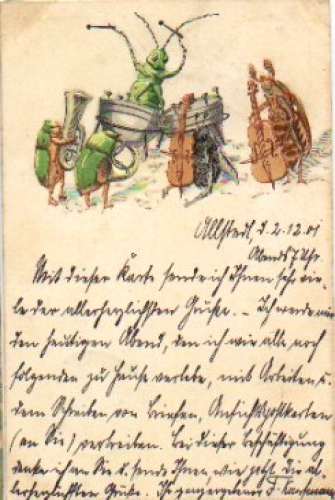 Allstedt, d. 2.12.01
Abends 7 Uhr.
Mit dieser Karte sende ich Ihnen sehr vie-
le der allerherzlichsten Grüße. – Ich werde mir
den heutigen Abend, den ich wie alle noch
folgenden zu Hause verlebe, mit Arbeiten u.
dem Schreiben von Briefen, Ansichtspostkarten
(an Sie) vertreiben. Bei dieser Beschäftigung
denke ich an Sie u. sende Ihnen wie gesagt die al-
lerherzlichsten Grüße. Ihr ganz ergebener F.